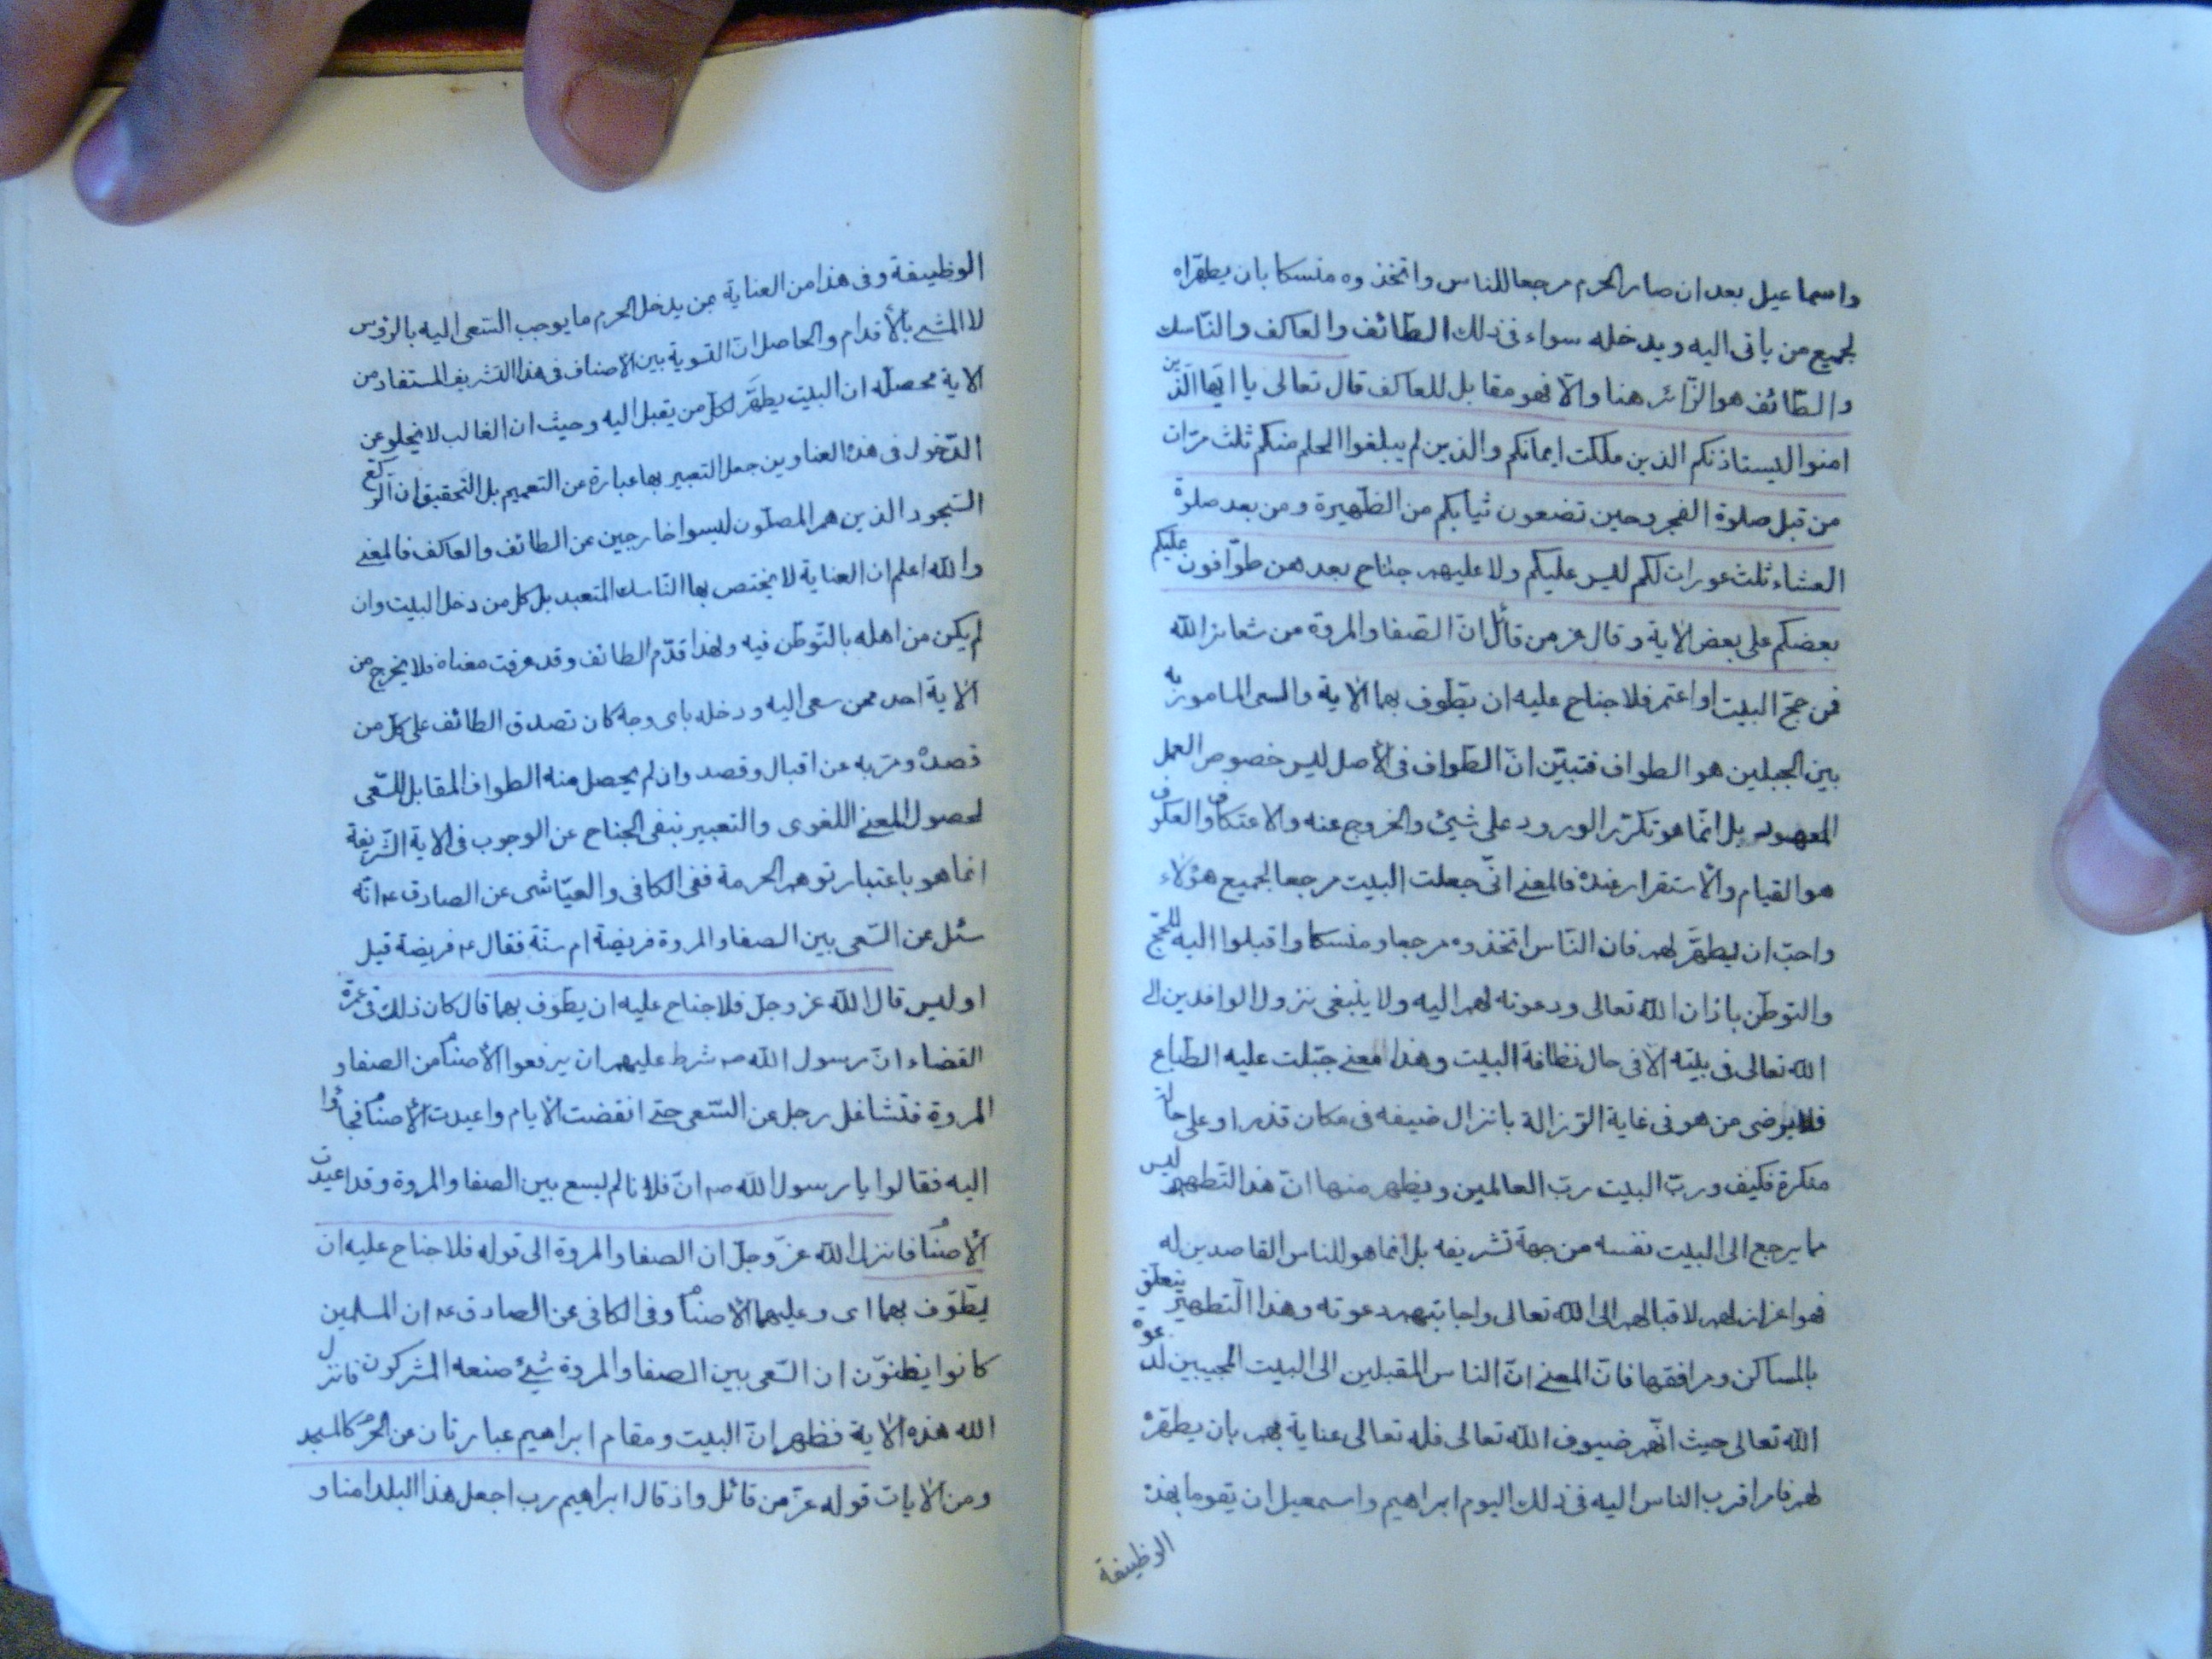 واسماعيل بعد ان صار الحرم مرجعا للناس واتخذوه منسكا بان يطهّراه
لجميع من ياتى اليه ويدخله سواء فى ذلك الطّائف والعاكف والنّاسك
والطّائف هو الزّائر هنا والّا فهو مقابل للعاكف قال تعالى يا ايّها الّذين
امنوا ليستاذنكم الذين ملكت ايمانكم والذين لم يبلغوا الحلم منكم ثلث مرّات
من قبل صلوة الفجر وحين تضعون ثيابكم من الظّهيرة ومن بعد صلوة
العشاء ثلث عورات لكم ليس عليكم ولا عليهم جناح بعدهن طوّافون عليكم
بعضكم على بعض الاية وقال عز من قائل انّ الصّفا والمروة من شعائر الله
فمن حجّ البيت او اعتمر فلا جناح عليه ان يطّوف بهما الاية والسعى المامور به
بين الجبلين هو الطواف فتبيّن انّ الطّواف فى الأصل ليس خصوص العمل
المعهود بل انّما هو تكرّر الورود على شيئ والخروج عنه والاعتكاف والعكوف
هو القيام والأستقرار عنده فالمعنى انّى جعلت البيت مرجعا لجميع هؤلاء
واحبّ ان يطهَّر لهم فان النّاس اتخذوه مرجعا ومنسكا واقبلوا اليه للحّجّ
والتوطّن باذان الله تعالى ودعوته لهم اليه ولا ينبغى نزول الوافدين الى
الله تعالى فى بيته الّا فى حال نظافة البيت وهذا معنى جبّلت عليه الطّباع
فلا يرضى من هو فى غاية الرّزالة بانزال ضيفه فى مكان قذر او على حالة
منكرة فكيف وربّ البيت ربّ العالمين ويظهر منها انّ هذا التّطهير ليس
مما يرجع الى البيت نفسه من جهة تشريفه بل انما هو للناس القاصدين له
فهو اعزاز لهم لاقبالهم الى الله تعالى واجابتهم دعوته وهذا التّطهير يتعلّق
بالمساكن ومرافقها فانّ المعنى انّ الناس المقبلين الى البيت المجيبين لدعوة
الله تعالى حيث انّهم ضيوف الله تعالى فله تعالى عناية بهم بان يطهّره
لهم فامر اقرب الناس اليه فى ذلك اليوم ابراهيم واسمعيل ان يقوما بهذه
الوظيفة
الوظيفة وفى هذا من العناية بمن يدخل الحرم ما يوجب السّعى اليه بالرؤس
لا المشى بالأقدام والحاصل انّ التسوية بين الاصناف فى هذا التشريف المستفاد من
الاية محصله ان البيت يطهَّر لكلّ من يقبل اليه وحيث ان الغالب لا يخلو عن
الدّخول فى هذه العناوين جعل التعبير بها عبارة عن التعميم بل التحقيق ان الرّكّع
السّجود الذين هم المصلّون ليسوا خارجين عن الطائف والعاكف فالمعنى
والله اعلم ان العناية لا يختص بها النّاسك المتعبد بل كل من دخل البيت وان
لم يكن من اهله بالتّوطّن فيه ولهذا قدّم الطائف وقد عرفت معناه فلا يخرج من
الاية احد ممن سعى اليه ودخله باى وجه كان تصدق الطائف على كلّ من
قصده ومرّ به عن اقبال وقصد وان لم يحصل منه الطواف المقابل للسّعى
لحصول المعنى اللغوى والتعبير بنفى الجناح عن الوجوب فى الاية الشّريفة
انما هو باعتبار توهم الحرمة ففى الكافى والعيّاشى عن الصادق عه انّه
سئل عن السّعى بين الصفا والمروة فريضة ام سنّة فقال عه فريضة قيل
اوليس قال الله عز وجل فلا جناح عليه ان يطوّف بهما قال كان ذلك فى عمرة
القضاء انّ رسول الله صه شرط عليهم ان يرفعوا الأصنام من الصفا و
المروة فتشاغل رجل عن السّعى حتى انقضت الايام واعيدت الأصنام فجاؤا
اليه فقالوا يا رسول الله صه انّ فلانا لم يسع بين الصفا والمروة وقد اعيدت
الأصنام فانزل الله عزّ وجلّ ان الصفا والمروة الى قوله فلا جناح عليه ان
يطّوّف بهما اى وعليهما الأصنام وفى الكافى عن الصادق عه ان المسلمين
كانوا يظنّون ان السّعى بين الصفا والمروة شيئ صنعه المشركون فانزل
الله هذه الاية فظهر انّ البيت ومقام ابراهيم عبارتان عن الحرم كالمسجد
ومن الايات قوله عزّ من قائل واذ قال ابراهيم رب اجعل هذا البلد امنا و